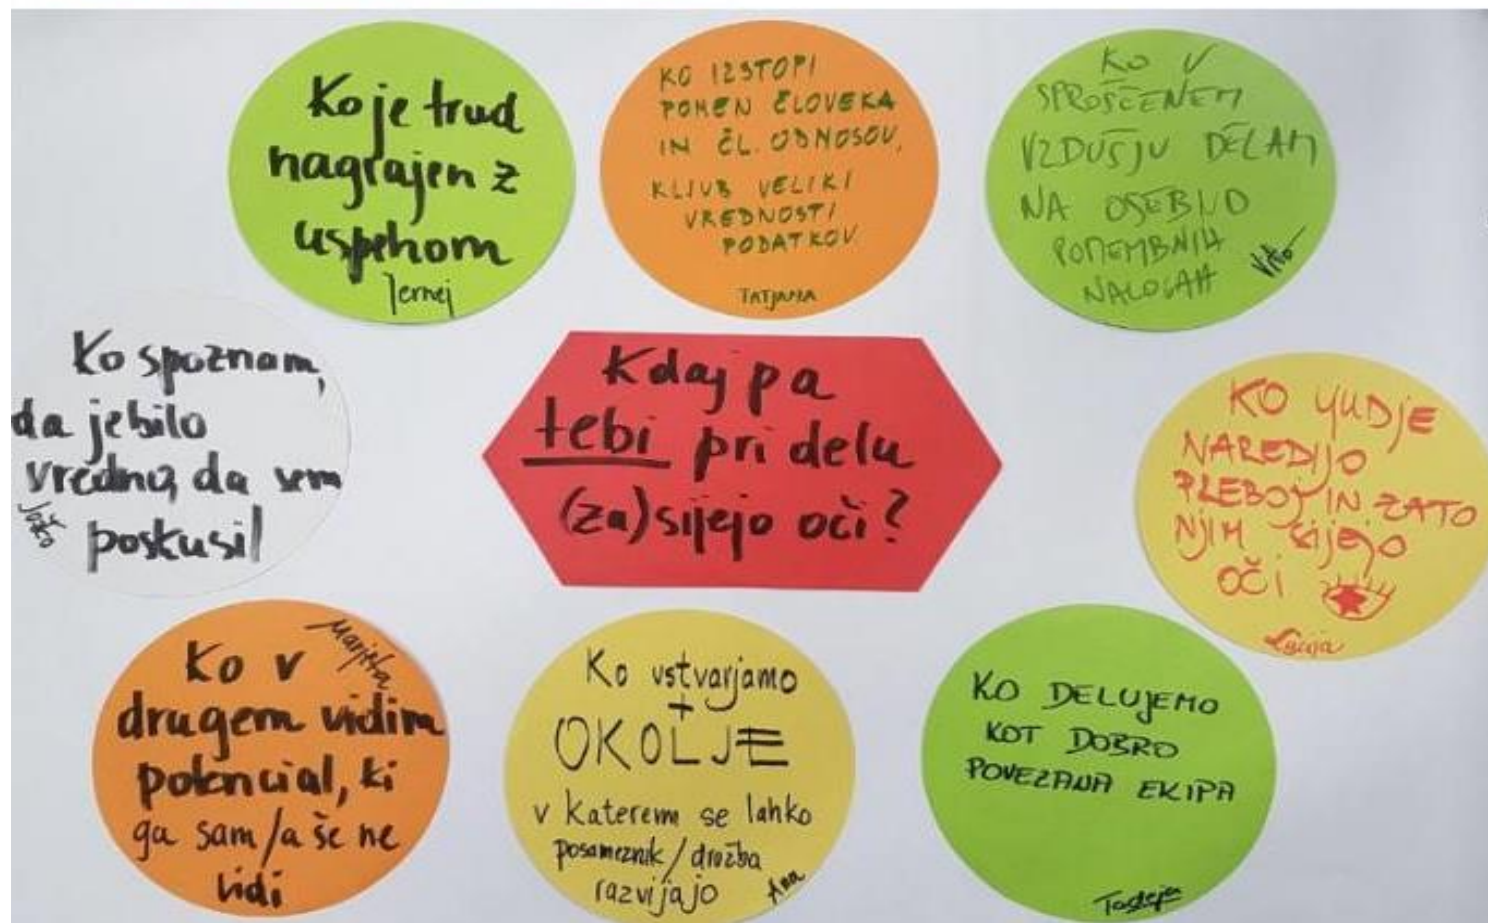 Ko je trud
nagrajen z
uspehom
Jernej
KO IZSTOPI
POMEN ČLOVEKA
IN ČL. ODNOSOV,
KLJUB VELIKI
VREDNOSTI
PODATKOV.
TATJANA
KO V
SPROŠČENEM
VZDUŠJU DELAM
NA OSEBNO
POMEMBNIH
NALOGAH
Vito
Ko spoznam,
da je bilo
vredno, da sem
poskusil
Joško
Kdaj pa
tebi pri delu
(za)sijejo oči?
KO LJUDJE
NAREDIJO
PREBOJ IN ZATO
NJIM SIJEJO
OČI
Marjeta
Ko v
drugem vidim
potencial, ki
ga sam/a še ne
vidi
Ko ustvarjamo
+
OKOLJE
v katerem se lahko
posameznik/družba
razvijajo
Ana
KO DELUJEMO
KOT DOBRO
POVEZANA EKIPA